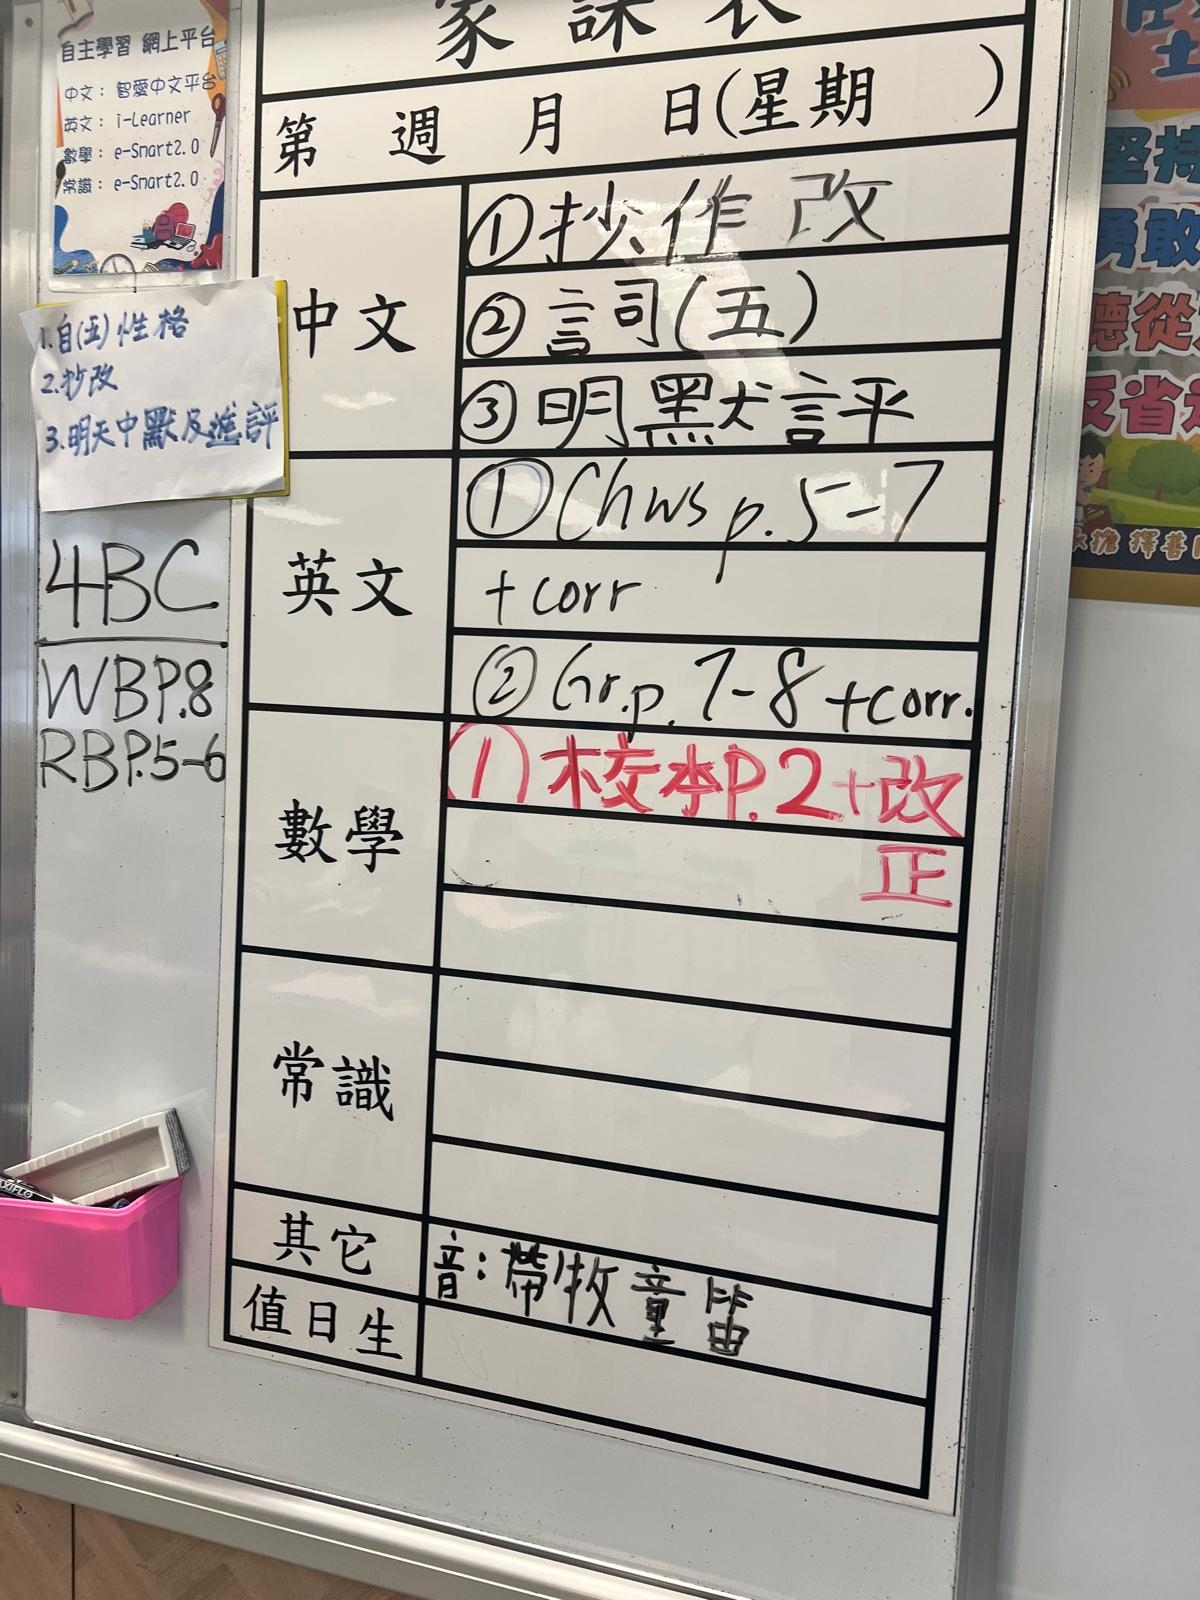 家課表
第 週 月 日(星期 )
自主學習 網上平台
中文: 智愛中文平台
英文: i-Learner
數學: e-Smart2.0
常識: e-Smart2.0
1.自(五)性格
2.抄改
3.明天中默及進評
4BC
WBP.8
RBP.5-6
中文
①抄作改
②詞(五)
③明默評
英文
①Chws p.5-7
+corr
②Gr.p.7-8+corr.
數學
①校本P.2+改
正
常識
其它
音:帶牧童笛
值日生
堅持
勇敢
聽從
反省
承擔 擇善